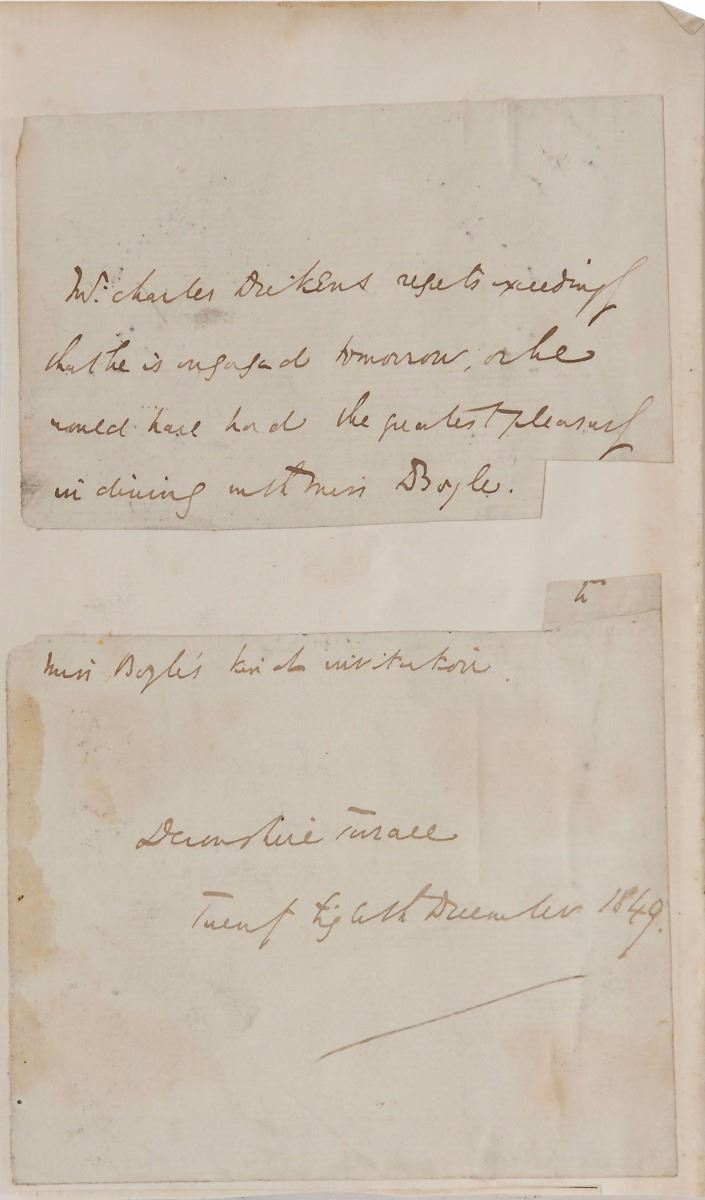 Mr. Charles Dickens regrets exceedingly
that he is engaged tomorrow, or he
would have had the greatest pleasure
in dining with Miss Boyle.
to
Miss Boyle's kind invitation.
Devonshire Terrace
Twenty Eighth December 1849.